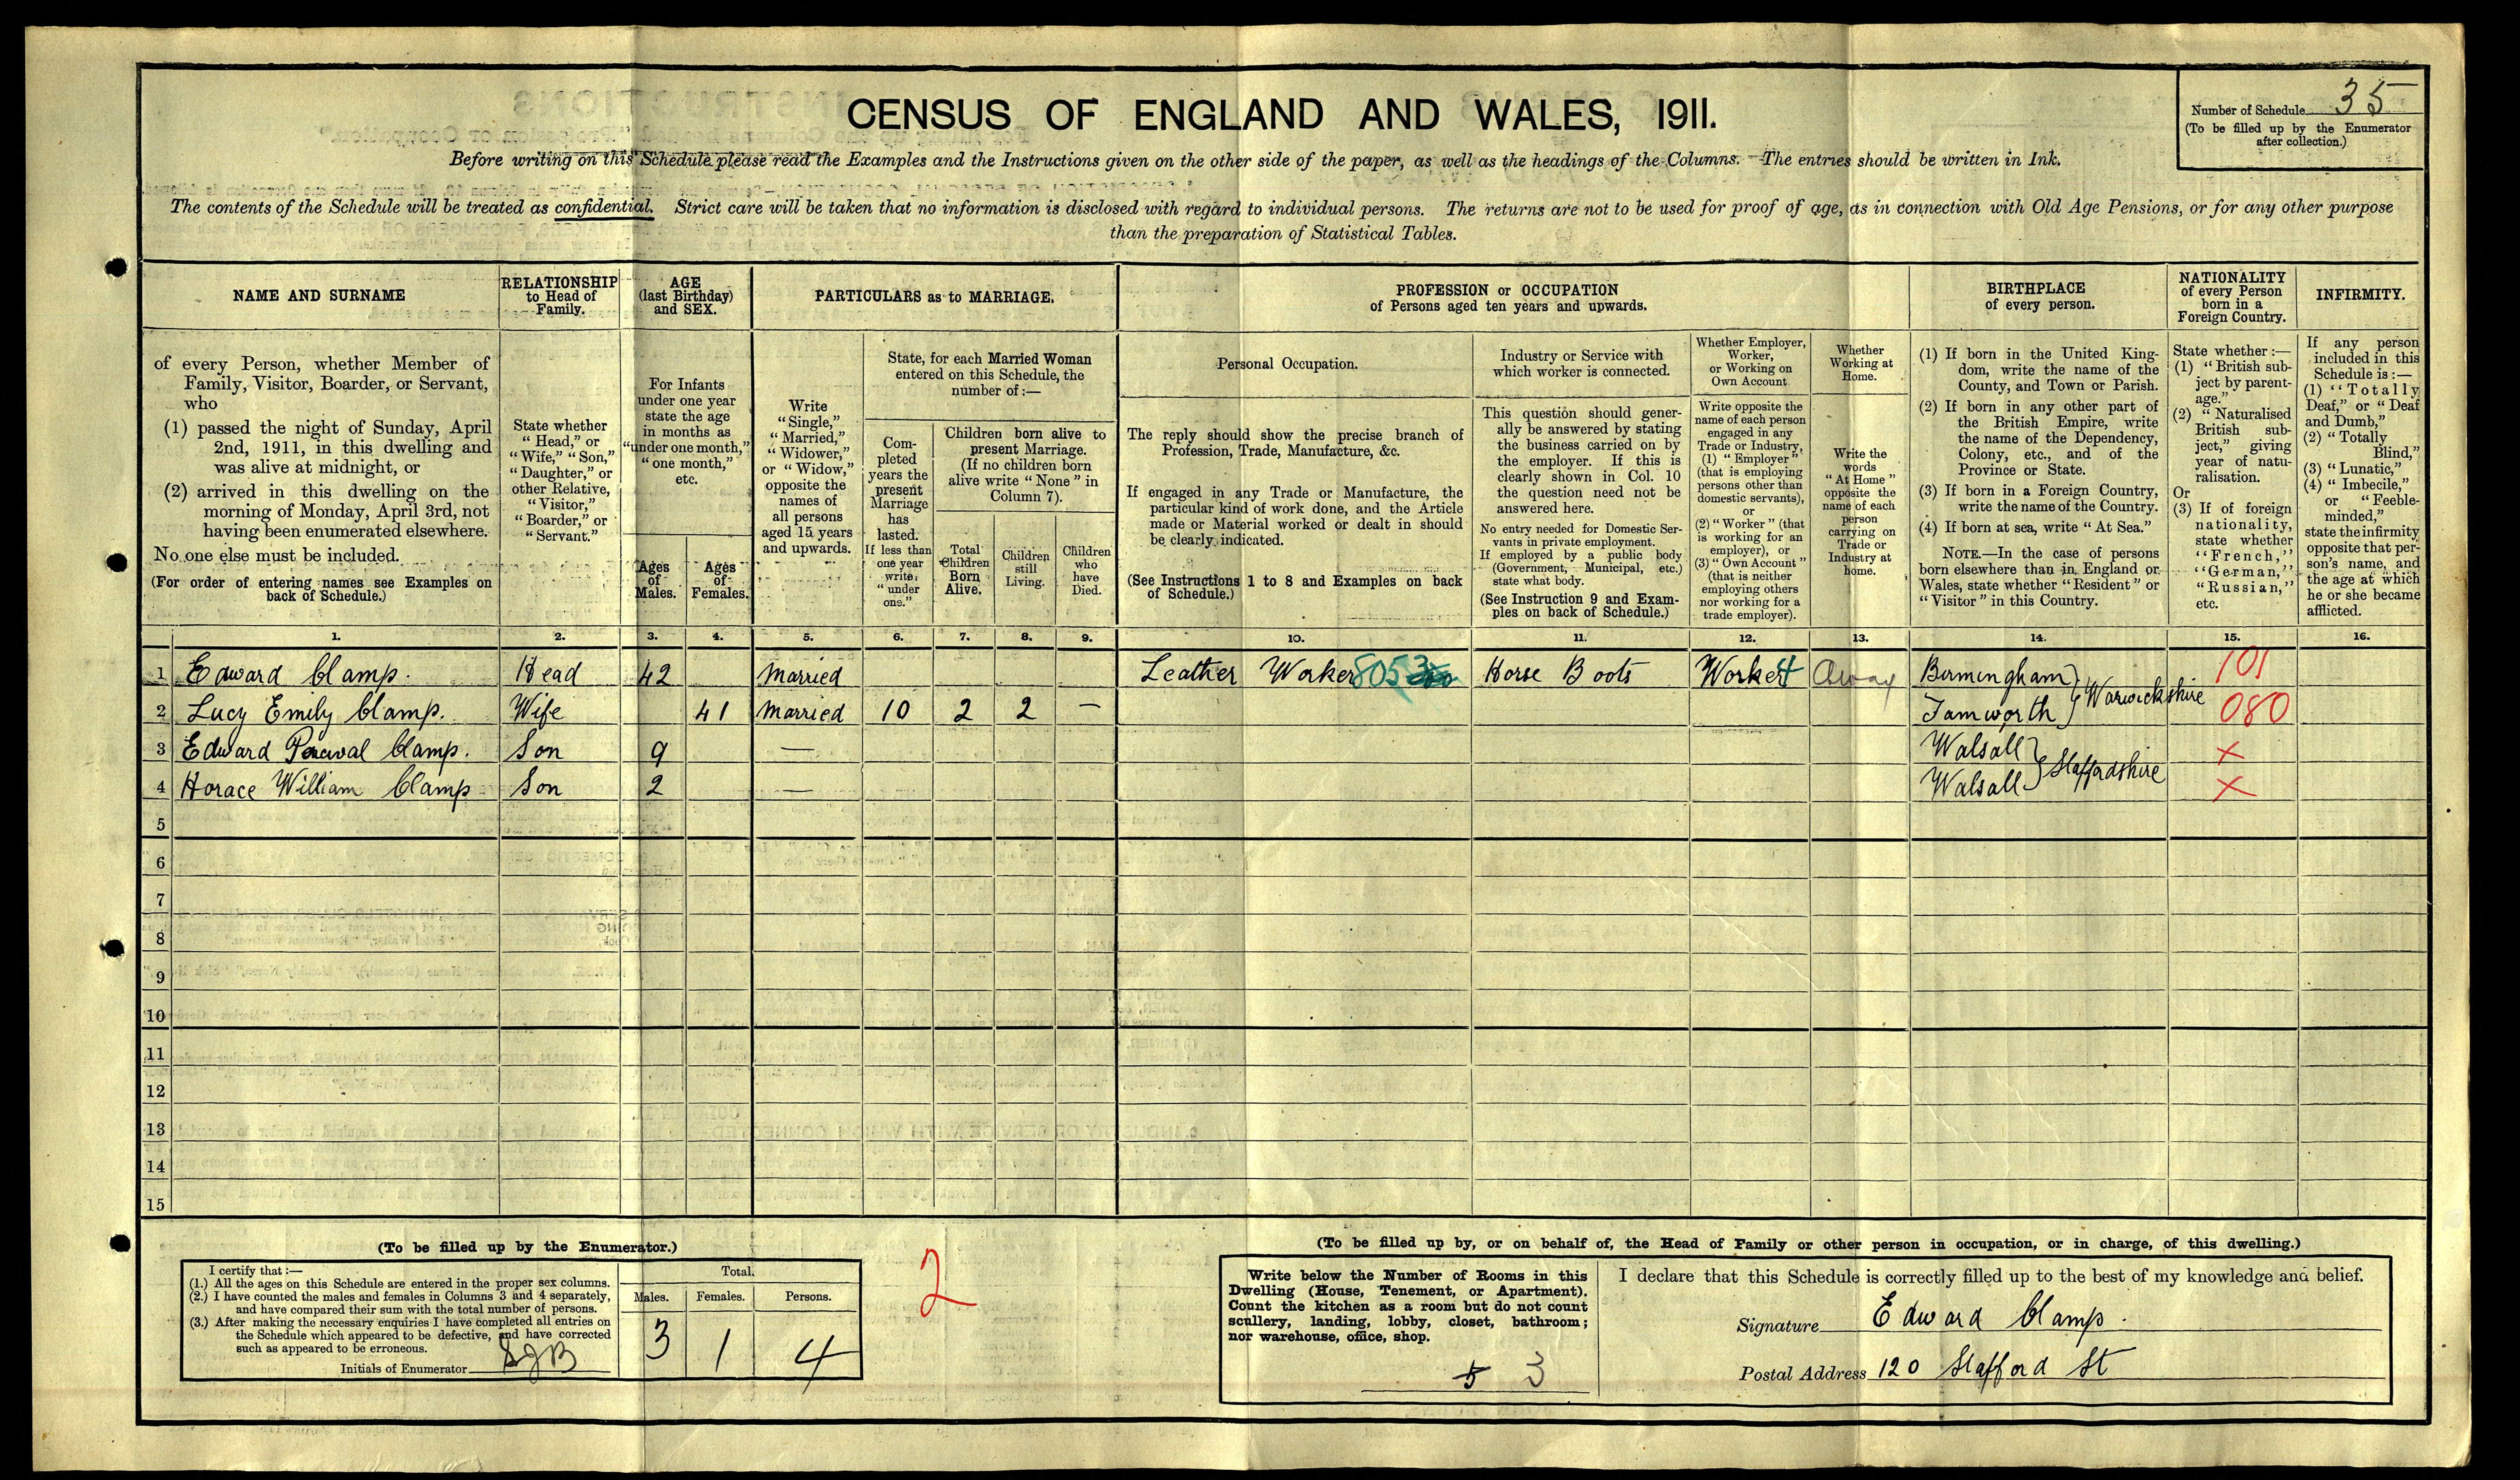 CENSUS OF ENGLAND AND WALES, 1911.
Number of Schedule 35
(To be filled up by the Enumerator
after collection.)
Before writing on this Schedule please read the Examples and the Instructions given on the other side of the paper, as well as the headings of the Columns. The entries should be written in Ink.
The contents of the Schedule will be treated as confidential. Strict care will be taken that no information is disclosed with regard to individual persons. The returns are not to be used for proof of age, as in connection with Old Age Pensions, or for any other purpose
than the preparation of Statistical Tables.
NAME AND SURNAME
of every Person, whether Member of
Family, Visitor, Boarder, or Servant,
who
(1) passed the night of Sunday, April
2nd, 1911, in this dwelling and
was alive at midnight, or
(2) arrived in this dwelling on the
morning of Monday, April 3rd, not
having been enumerated elsewhere.
No one else must be included.
(For order of entering names see Examples on
back of Schedule.)
RELATIONSHIP
to Head of
Family.
State whether
"Head," or
"Wife," "Son,"
"Daughter," or
other Relative,
"Visitor,"
"Boarder," or
"Servant."
AGE
(last Birthday)
and SEX.
For Infants
under one year
state the age
in months as
"under one month,"
"one month,"
etc.
Ages
of
Males.
Ages
of
Females.
PARTICULARS as to MARRIAGE.
Write
"Single,"
"Married,"
"Widower,"
or "Widow,"
opposite the
names of
all persons
aged 15 years
and upwards.
State, for each Married Woman
entered on this Schedule, the
number of:—
Com-
pleted
years the
present
Marriage
has
lasted.
If less than
one year
write
"under
one."
Children born alive to
present Marriage.
(If no children born
alive write "None" in
Column 7).
Total
Children
Born
Alive.
Children
still
Living.
Children
who
have
Died.
PROFESSION or OCCUPATION
of Persons aged ten years and upwards.
Personal Occupation.
The reply should show the precise branch of
Profession, Trade, Manufacture, &c.
If engaged in any Trade or Manufacture, the
particular kind of work done, and the Article
made or Material worked or dealt in should
be clearly indicated.
(See Instructions 1 to 8 and Examples on back
of Schedule.)
Industry or Service with
which worker is connected.
This question should gener-
ally be answered by stating
the business carried on by
the employer. If this is
clearly shown in Col. 10
the question need not be
answered here.
No entry needed for Domestic Ser-
vants in private employment.
If employed by a public body
(Government, Municipal, etc.)
state what body.
(See Instruction 9 and Exam-
ples on back of Schedule.)
Whether Employer,
Worker,
or Working on
Own Account
Write opposite the
name of each person
engaged in any
Trade or Industry,
(1) "Employer"
(that is employing
persons other than
domestic servants),
or
(2) "Worker" (that
is working for an
employer), or
(3) "Own Account"
(that is neither
employing others
nor working for a
trade employer).
Whether
Working at
Home.
Write the
words
"At Home"
opposite the
name of each
person
carrying on
Trade or
Industry at
home.
BIRTHPLACE
of every person.
(1) If born in the United King-
dom, write the name of the
County, and Town or Parish.
(2) If born in any other part of
the British Empire, write
the name of the Dependency,
Colony, etc., and of the
Province or State.
(3) If born in a Foreign Country,
write the name of the Country.
(4) If born at sea, write "At Sea."
NOTE.—In the case of persons
born elsewhere than in England or
Wales, state whether "Resident" or
"Visitor" in this Country.
NATIONALITY
of every Person
born in a
Foreign Country.
State whether :—
(1) "British sub-
ject by parent-
age."
(2) "Naturalised
British sub-
ject," giving
year of natu-
ralisation.
Or
(3) If of foreign
nationality,
state whether
"French,"
"German,"
"Russian,"
etc.
INFIRMITY.
If any person
included in this
Schedule is :—
(1) "Totally
Deaf," or "Deaf
and Dumb,"
(2) "Totally
Blind,"
(3) "Lunatic,"
(4) "Imbecile,"
or "Feeble-
minded,"
state the infirmity
opposite that per-
son's name, and
the age at which
he or she became
afflicted.
1. 2. 3. 4. 5. 6. 7. 8. 9. 10. 11. 12. 13. 14. 15. 16.
1 Edward Clamp. Head 42 Married Leather Worker 805 Horse Boots Worker 4 Away Birmingham } Warwickshire 101
2 Lucy Emily Clamp. Wife 41 Married 10 2 2 — Tamworth 080
3 Edward Percival Clamp. Son 9 — Walsall } Staffordshire ×
4 Horace William Clamp Son 2 — Walsall ×
5
6
7
8
9
10
11
12
13
14
15
(To be filled up by the Enumerator.)
I certify that :—
(1.) All the ages on this Schedule are entered in the proper sex columns.
(2.) I have counted the males and females in Columns 3 and 4 separately,
and have compared their sum with the total number of persons.
(3.) After making the necessary enquiries I have completed all entries on
the Schedule which appeared to be defective, and have corrected
such as appeared to be erroneous.
Initials of Enumerator
Total.
Males. Females. Persons.
3 1 4
2
(To be filled up by, or on behalf of, the Head of Family or other person in occupation, or in charge, of this dwelling.)
Write below the Number of Rooms in this
Dwelling (House, Tenement, or Apartment).
Count the kitchen as a room but do not count
scullery, landing, lobby, closet, bathroom;
nor warehouse, office, shop.
5 3
I declare that this Schedule is correctly filled up to the best of my knowledge and belief.
Signature Edward Clamp.
Postal Address 120 Stafford St